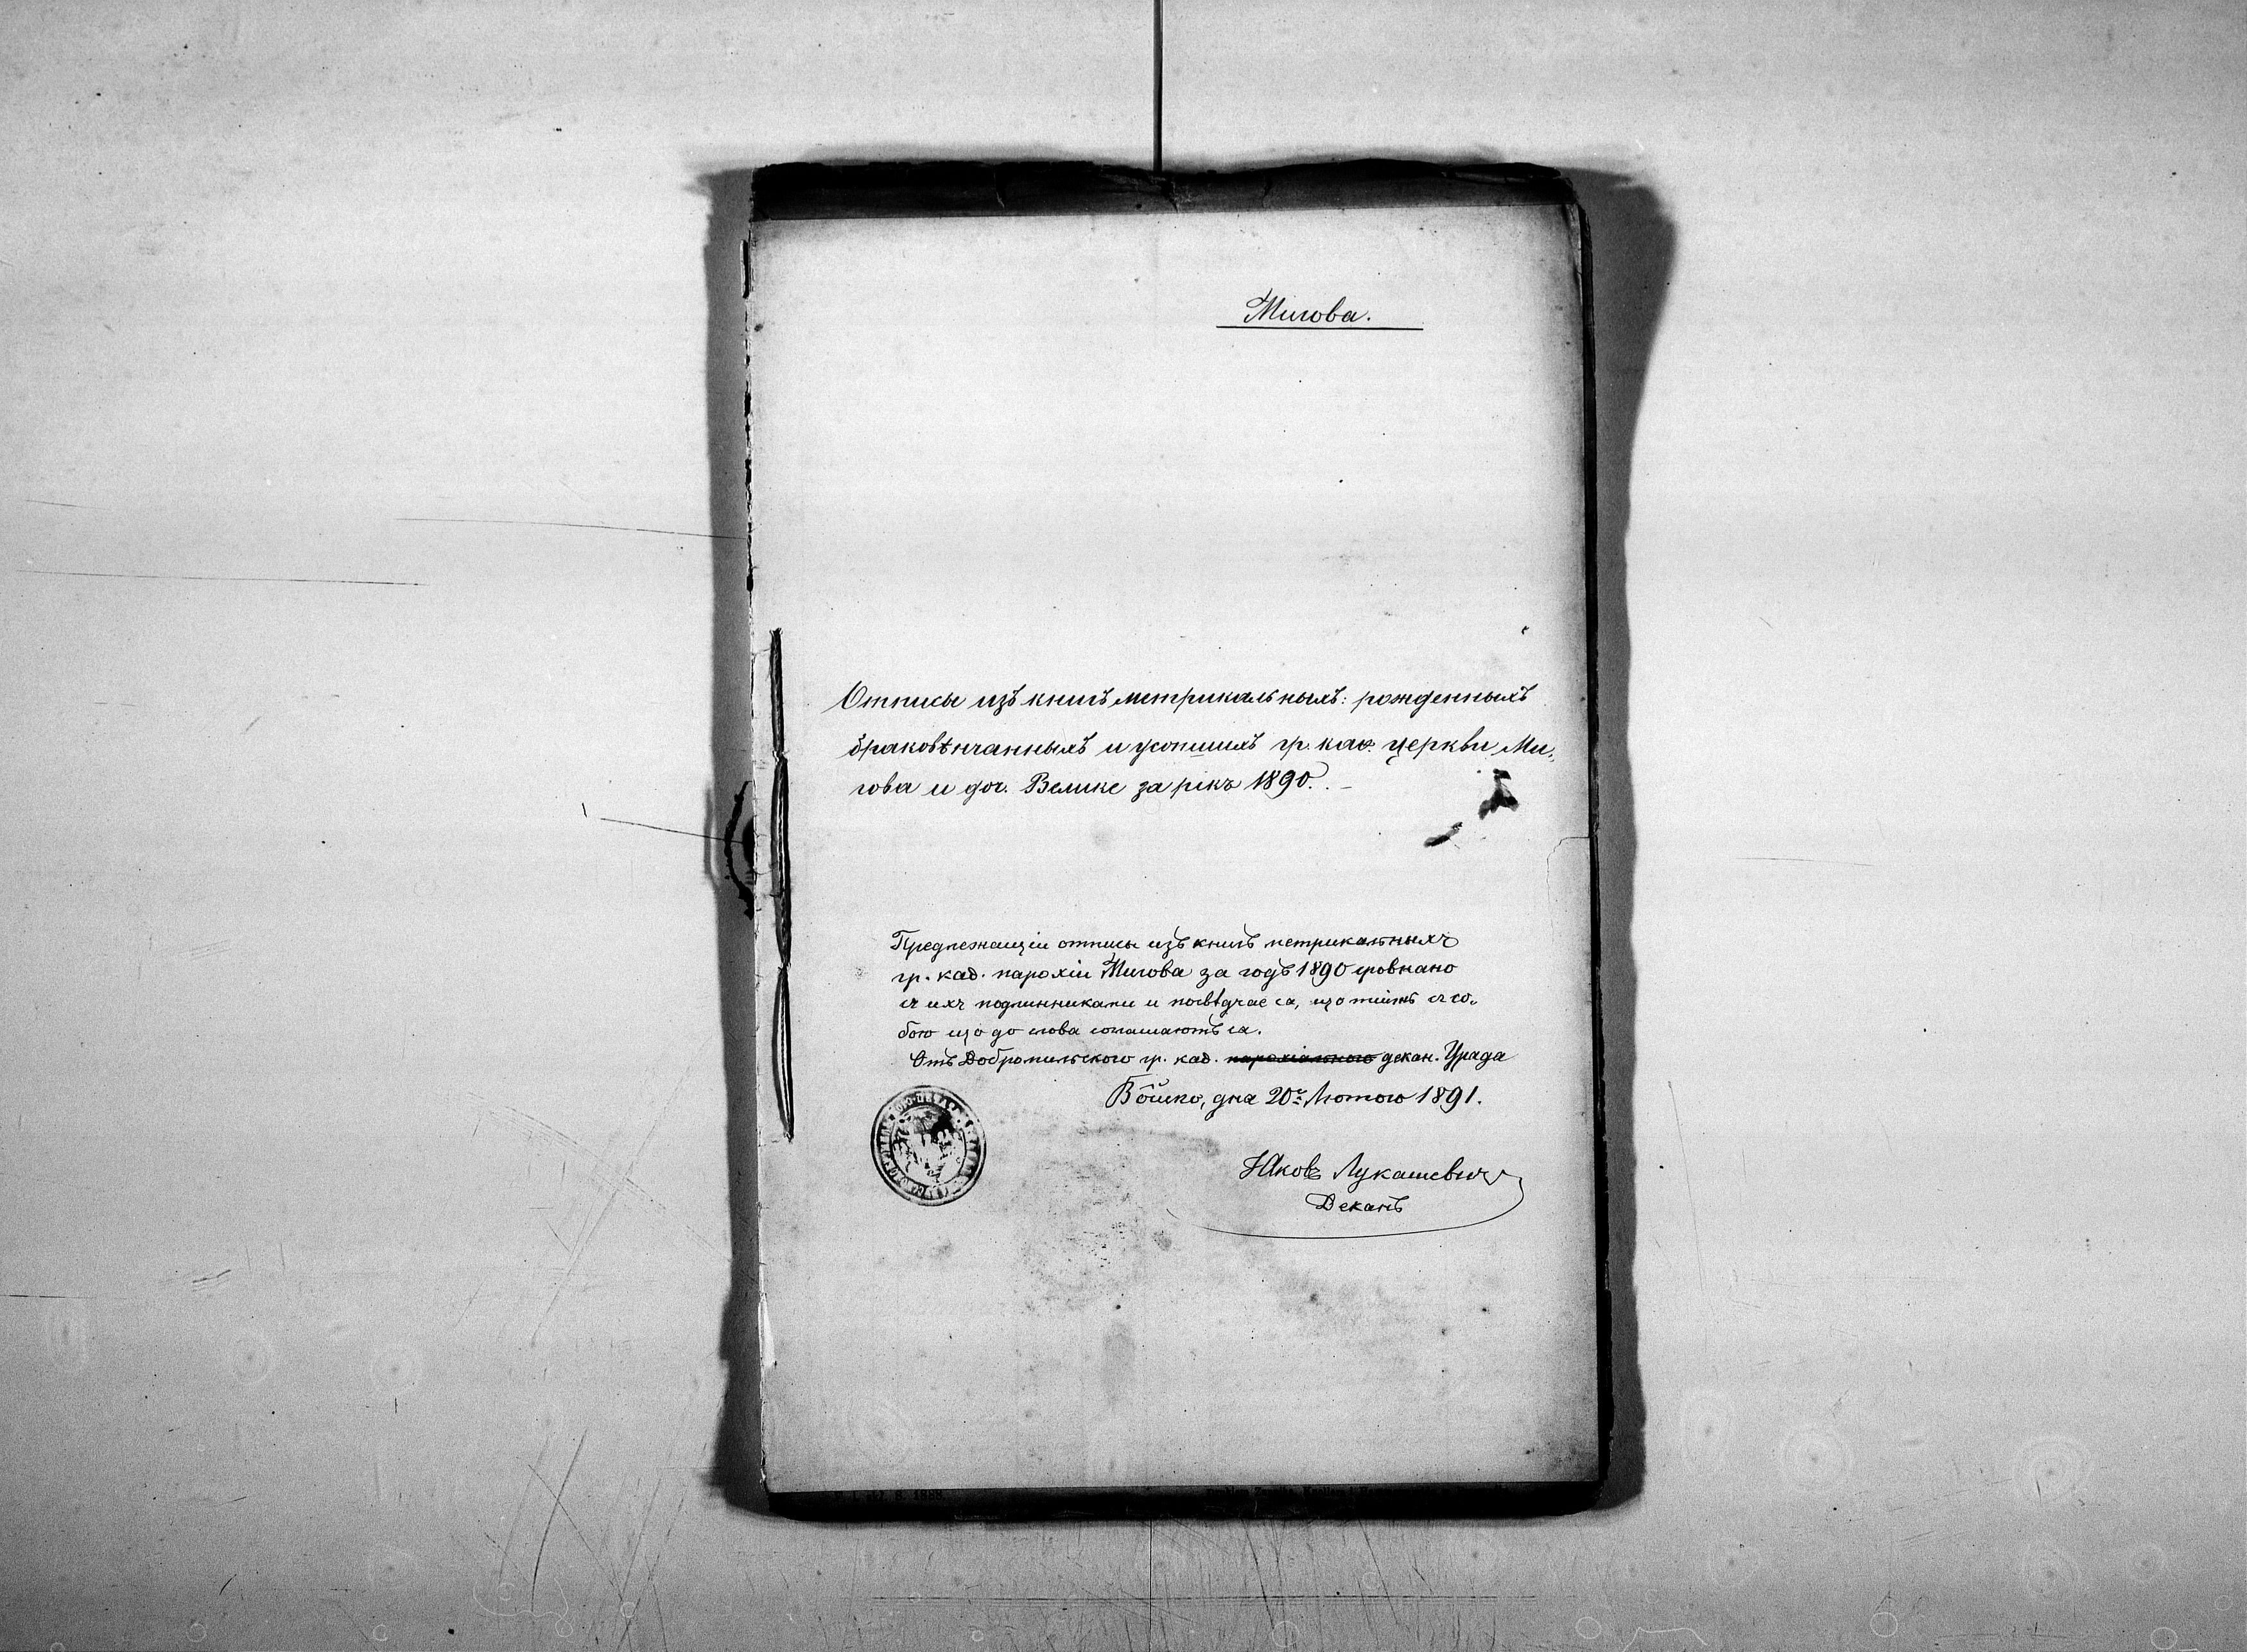 Мигова.
Отписы изъ книгъ метрикальныхъ: рожденныхъ
браковѣнчанныхъ и усопшихъ гр. каѳ. церкви Ми-
гова и доч. Велике за рікъ 1890. –
Предлежащіи отписы изъ книгъ метрикальныхъ
гр. каѳ. парохіи Мигова за годъ 1890 зровнано
съ ихъ подлинниками и посвѣдчае ся, що тіижъ съ со-
бою що до слова соглашаютъ ся.
Отъ Добромильского гр. каѳ. парохіального декан. Уряда
Вôйско, дня 20го Лютого 1891.
Яковъ Лукашевич
Деканъ